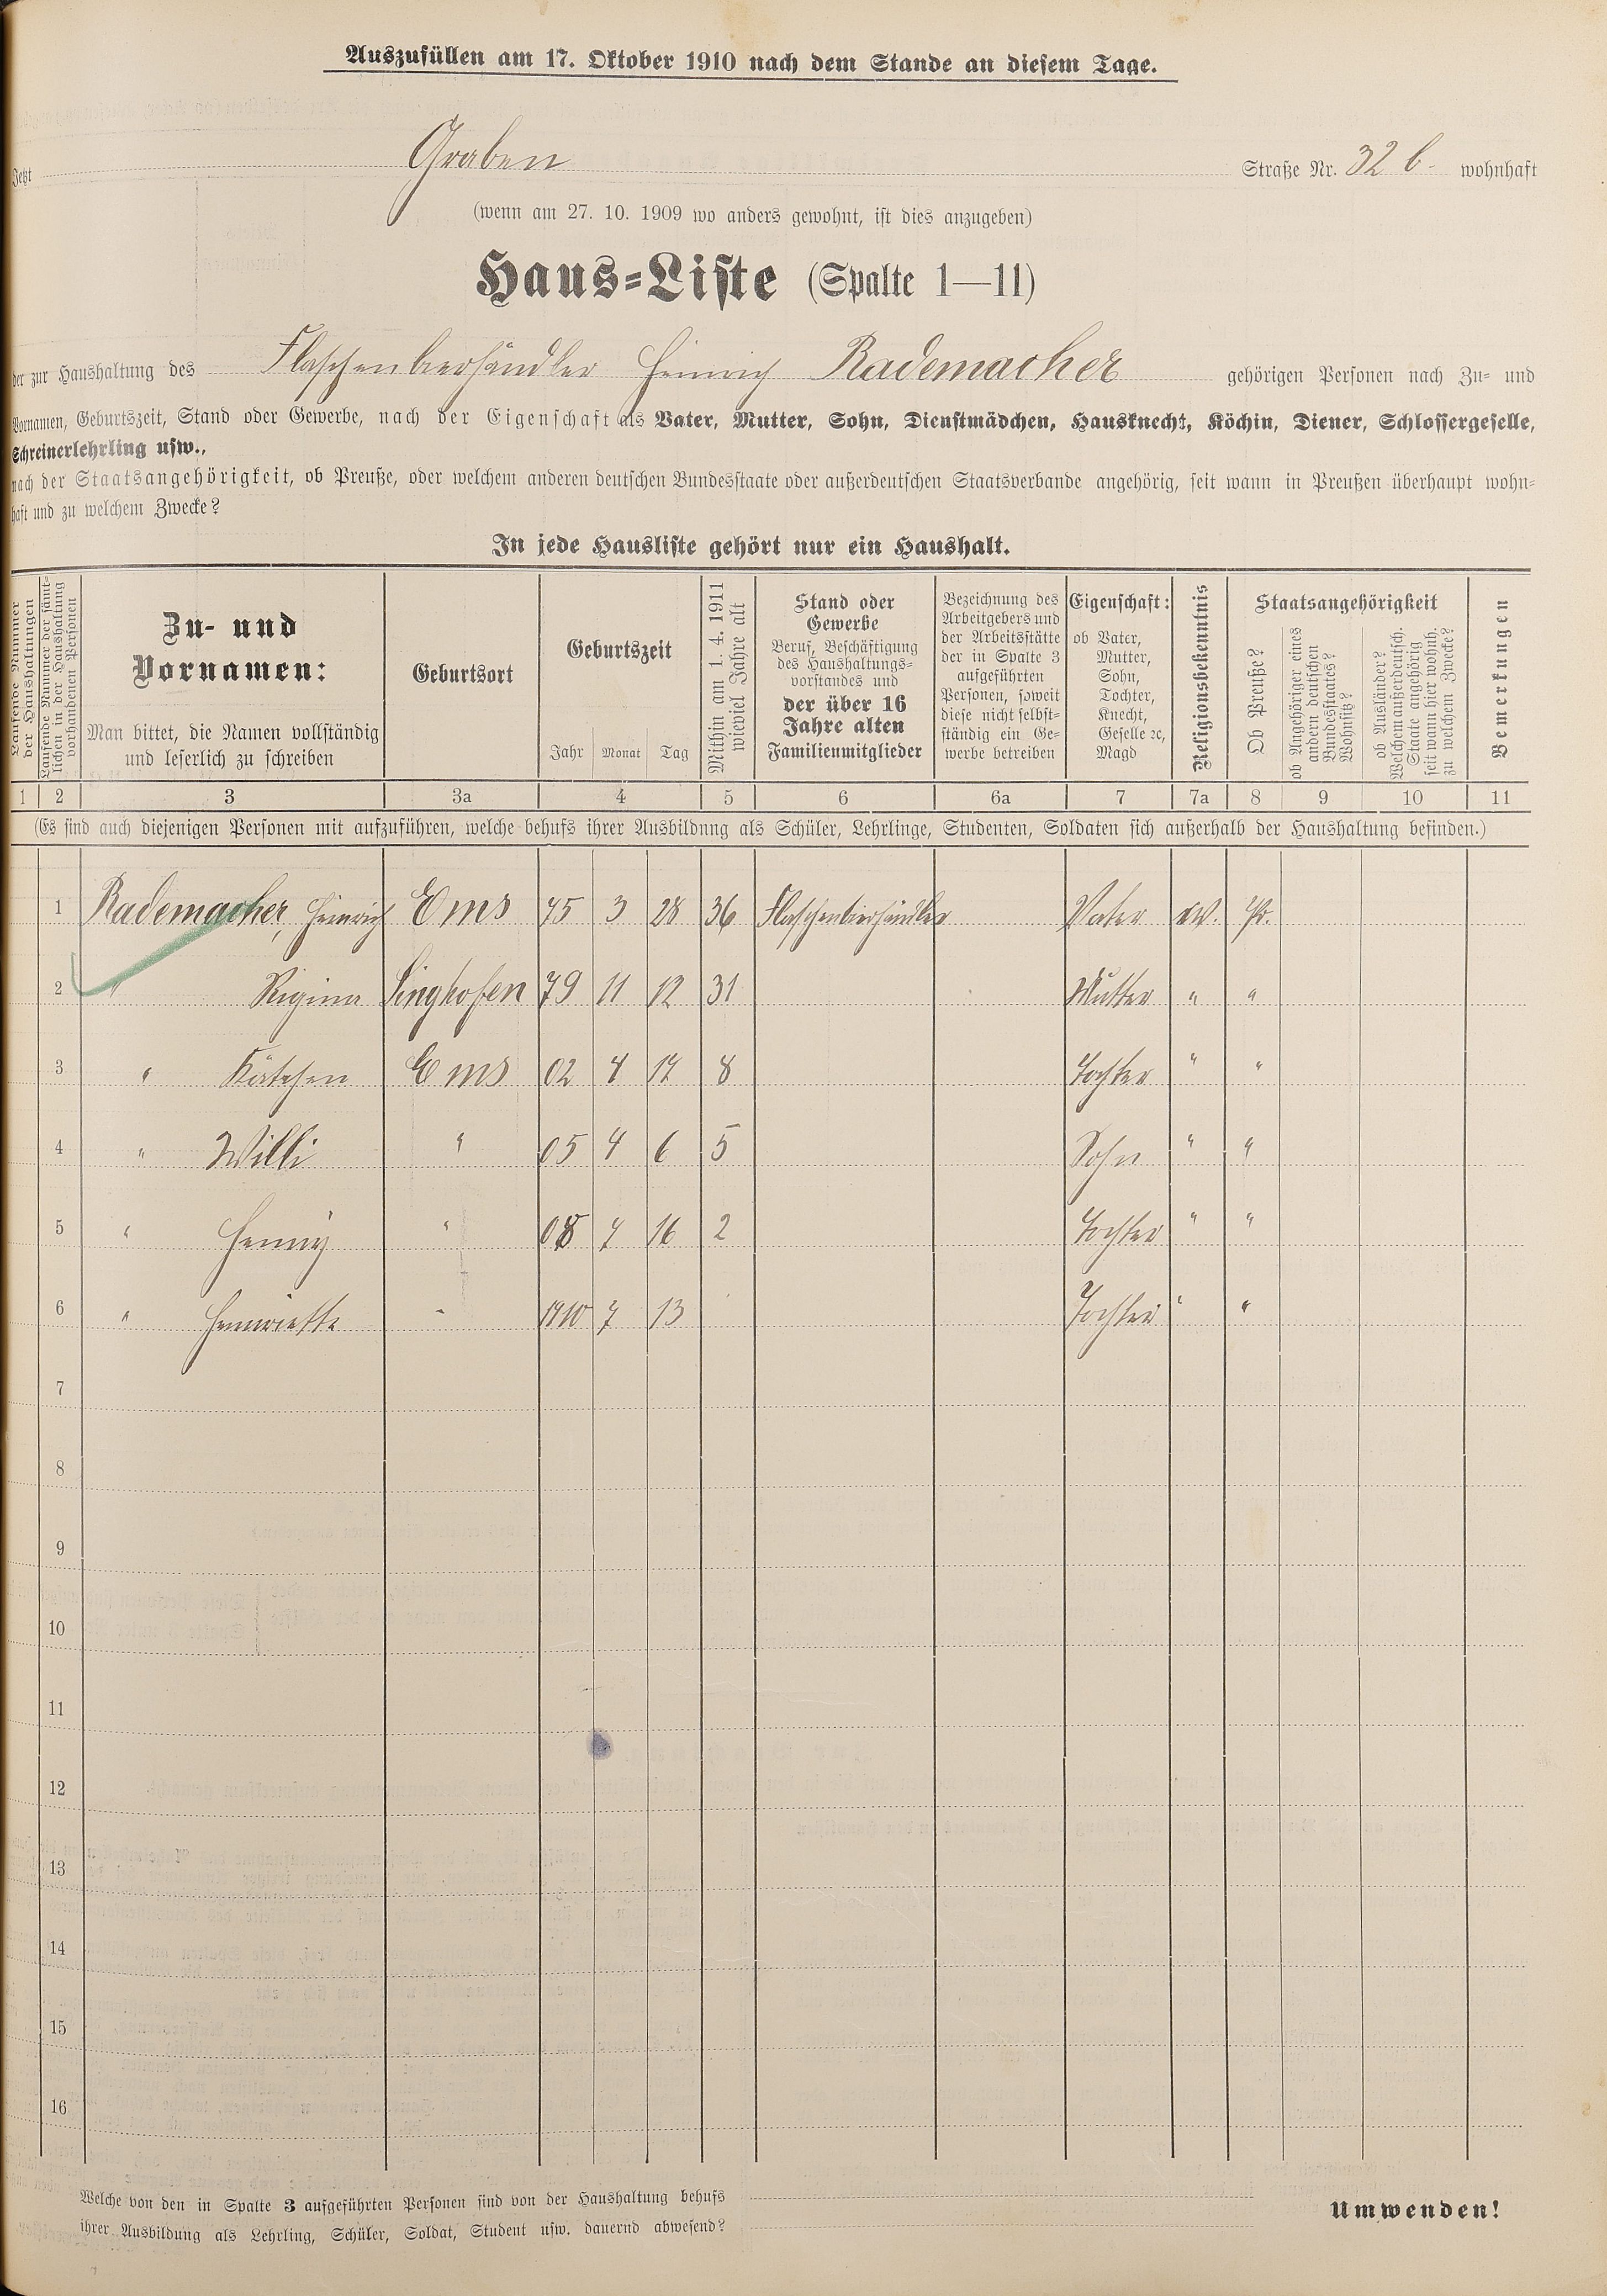 Auszufüllen am 17. Oktober 1910 nach dem Stande an diesem Tage.
Jetzt Graben Straße Nr. 32 b wohnhaft
(wenn am 27. 10. 1909 wo anders gewohnt, ist dies anzugeben)
Haus=Liste (Spalte 1—11)
der zur Haushaltung des Flaschenbierhändler Heinrich Rademacher gehörigen Personen nach Zu= und
Vornamen, Geburtszeit, Stand oder Gewerbe, nach der Eigenschaft als Vater, Mutter, Sohn, Dienstmädchen, Hausknecht, Köchin, Diener, Schlossergeselle,
Schreinerlehrling usw.,
nach der Staatsangehörigkeit, ob Preuße, oder welchem anderen deutschen Bundesstaate oder außerdeutschen Staatsverbande angehörig, seit wann in Preußen überhaupt wohn=
haft und zu welchem Zwecke?
In jede Hausliste gehört nur ein Haushalt.
Laufende Nummer der Haushaltungen
Laufende Nummer der sämt=lichen in der Haushaltung vorhandenen Personen
Zu- und
Vornamen:
Man bittet, die Namen vollständig
und leserlich zu schreiben
Geburtsort
Geburtszeit
Jahr Monat Tag
Mithin am 1. 4. 1911
wieviel Jahre alt
Stand oder
Gewerbe
Beruf, Beschäftigung
des Haushaltungs=
vorstandes und
der über 16
Jahre alten
Familienmitglieder
Bezeichnung des
Arbeitgebers und
der Arbeitsstätte
der in Spalte 3
aufgeführten
Personen, soweit
diese nicht selbst=
ständig ein Ge=
werbe betreiben
Eigenschaft:
ob Vater,
Mutter,
Sohn,
Tochter,
Knecht,
Geselle ꝛc,
Magd
Religionsbekenntnis
Staatsangehörigkeit
Ob Preuße?
ob Angehöriger eines
andern deutschen
Bundesstaates?
Wohnsitz?
ob Ausländer?
Welchem außerdeutsch.
Staate angehörig
seit wann hier wohnh.
zu welchem Zwecke?
Bemerkungen
1 2 3 3a 4 5 6 6a 7 7a 8 9 10 11
(Es sind auch diejenigen Personen mit aufzuführen, welche behufs ihrer Ausbildnng als Schüler, Lehrlinge, Studenten, Soldaten sich außerhalb der Haushaltung befinden.)
1 Rademacher, Heinrich Ems 75 3 28 36 Flaschenbierhändler Vater ev. Pr.
2 " Regina Singhofen 79 11 12 31 Mutter " "
3 " Kätchen Ems 02 4 17 8 Tochter " "
4 " Willi " 05 4 6 5 Sohn " "
5 " Henny " 08 7 16 2 Tochter " "
6 " Henriette " 1910 7 13 Tochter " "
7
8
9
10
11
12
13
14
15
16
Welche von den in Spalte 3 aufgeführten Personen sind von der Haushaltung behufs
ihrer Ausbildung als Lehrling, Schüler, Soldat, Student usw. dauernd abwesend?
Umwenden!